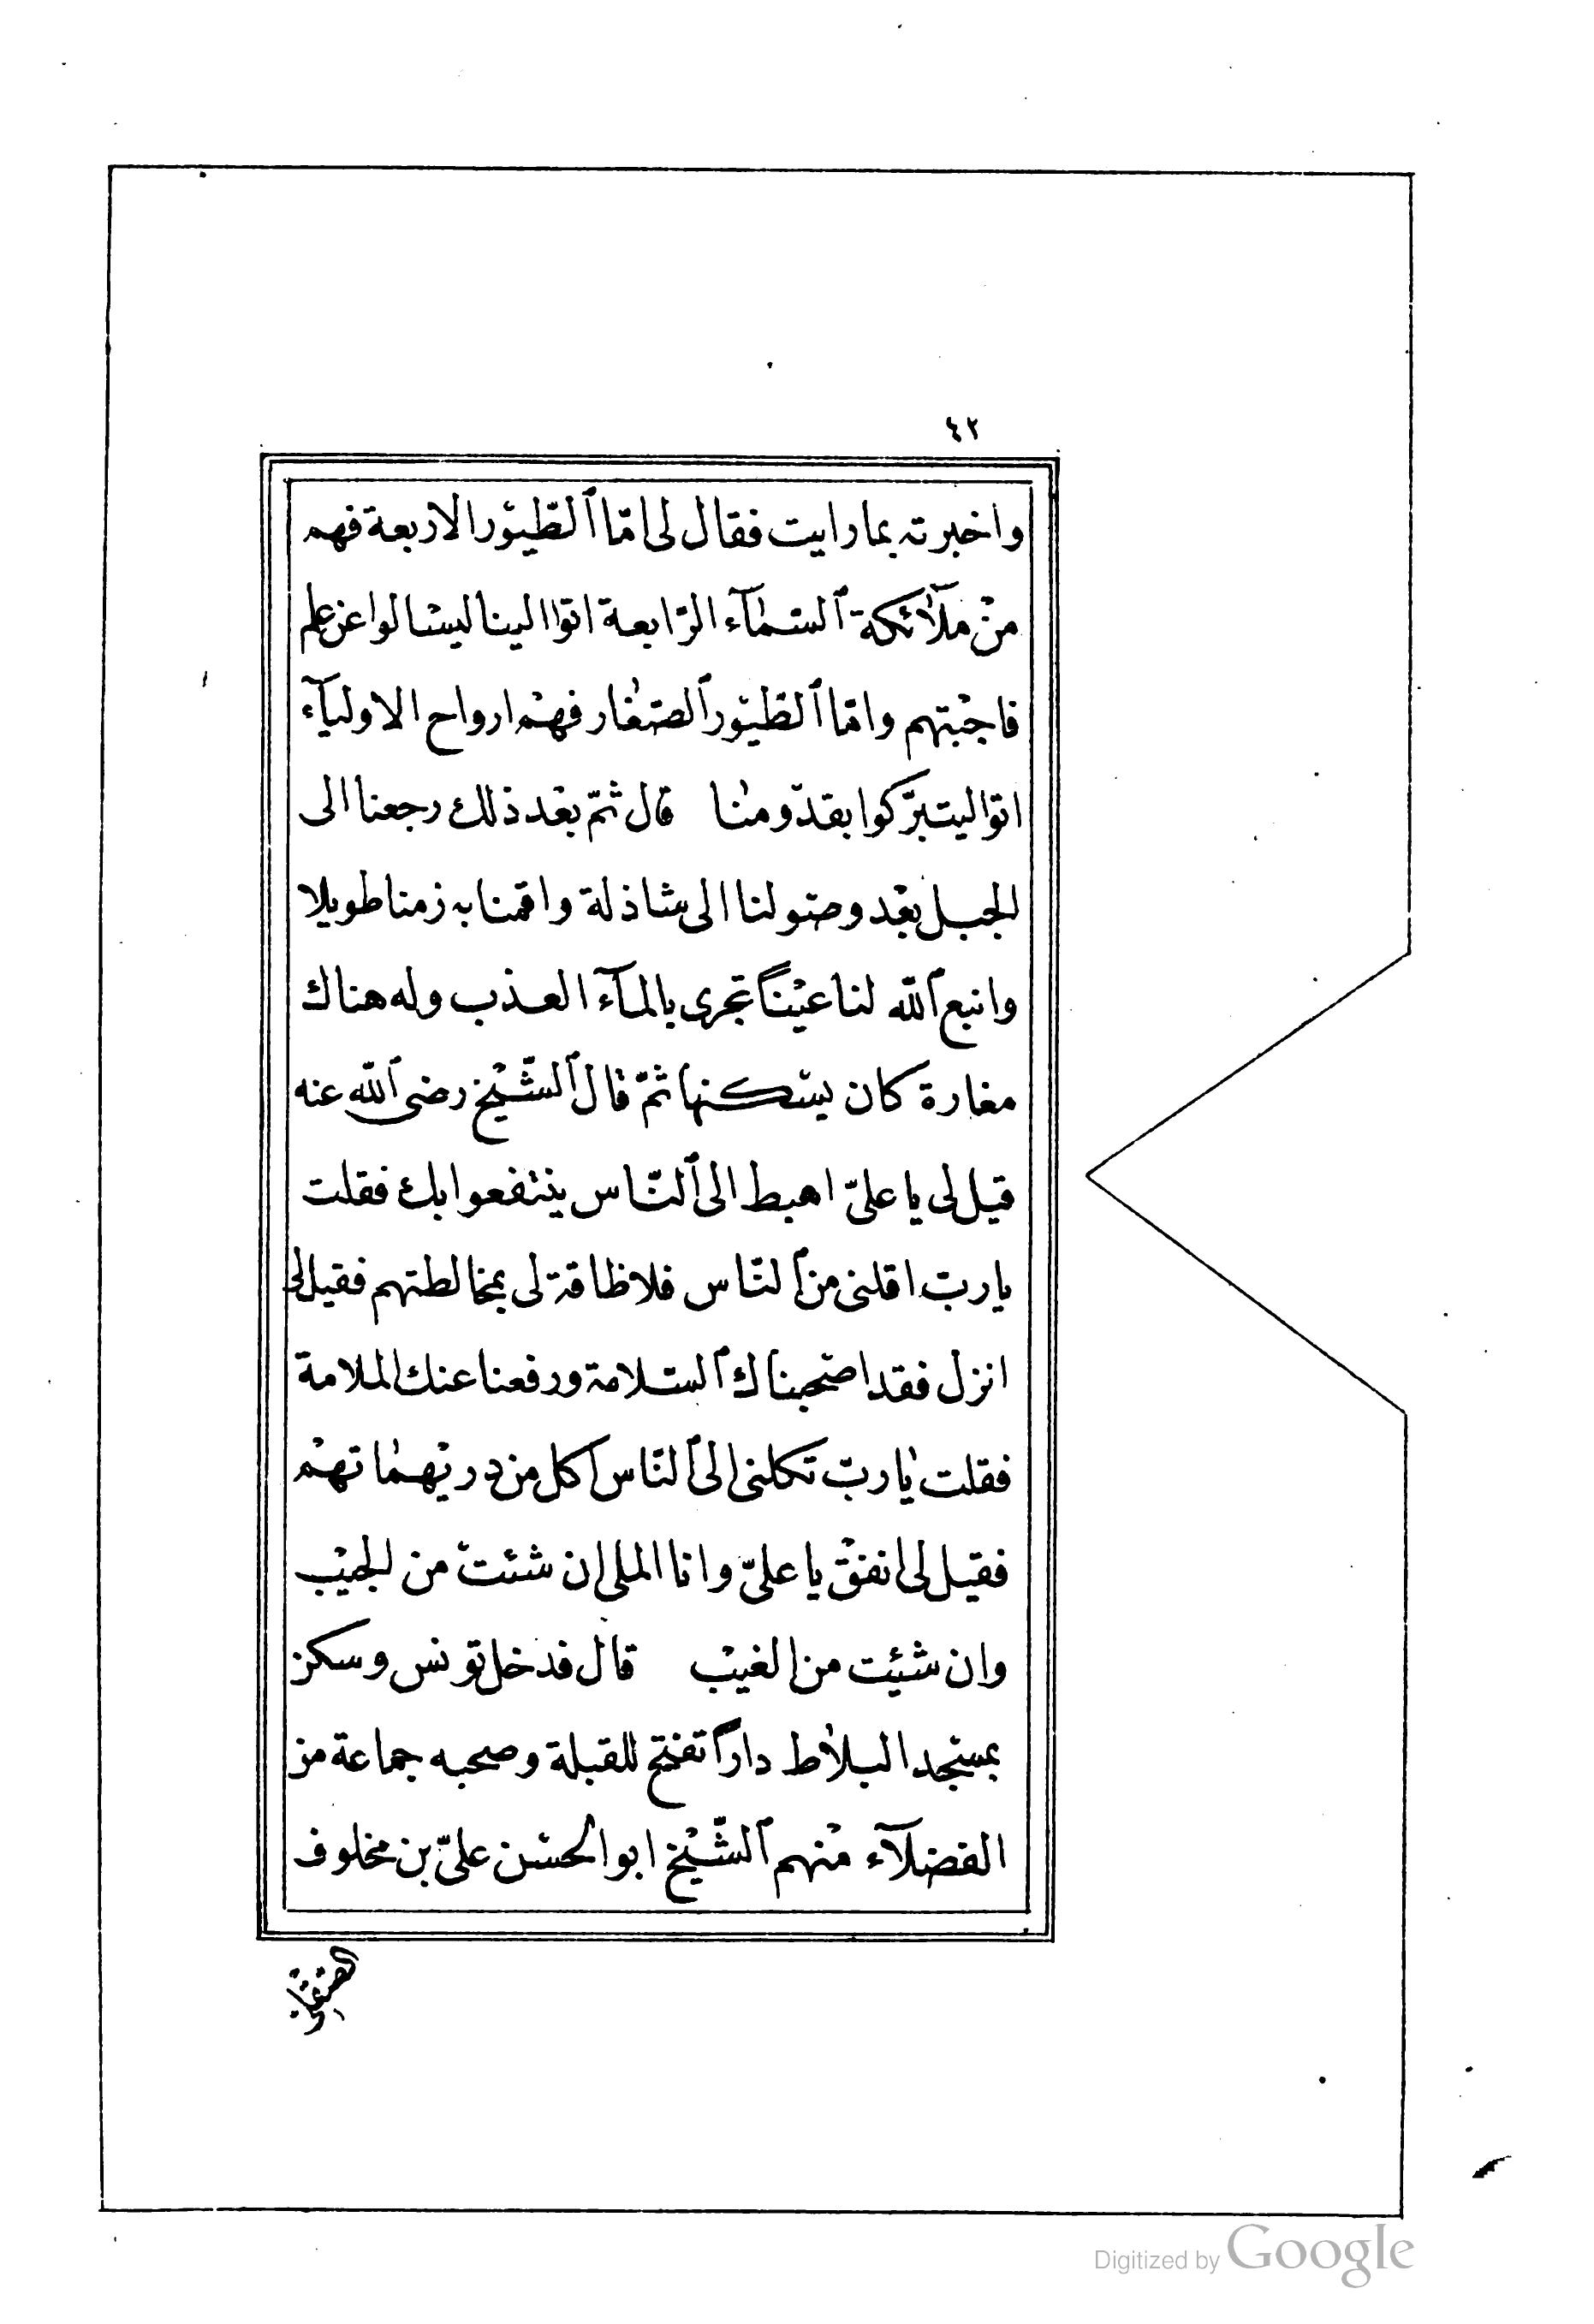 ٤٢
واخبرته بما رايت فقال لى امّا ٱلطّيُور الاربعة فهم
منْ ملٰٓائكة ٱلسّمٰآء الرّابعة اتوا الينا ليسْالوا عن علم
فاجبْتهم وامّا ٱلطّيُور ٱلصّغٰار فهمْ ارواح الاوليآء
اتوا ليتبرّكوا بقدومنٰا قال ثمّ بعْد ذلك رجعنا الى
الجبل بعْد وصولنا الى شاذلة واقمْنا به زمنا طويلا
وانبع ٱللّه لنا عيْنًا تجرى بالمآء العذب وله هناك
مغارة كان يسْكنها ثمّ قال ٱلشّيْخ رضى ٱللّه عنه
قيل لى يا علىّ اهبط الى ٱلنّاس ينتفعوا بك فقلت
يا ربّ اقلنى من ٱلنّاس فلا طاقة لى بمخالطتهم فقيل لى
انزل فقد اصْحبناك ٱلسّلامة ورفعنا عنك الملامة
فقلت يٰا ربّ تكلنى الى ٱلنّاس اكل من دريْهمٰاتهمْ
فقيل لى انفقْ يا علىّ وانا الملى ان شئت من الجيْب
وان شئت من الغيْب قال فدخل تونس وسكن
بمسْجد البلاط دارًا تفتح للقبلة وصحبه جماعة من
الفضلآء منْهم ٱلشّيْخ ابو الحسْن علىّ بن مخلوف
الصّقلى
Digitized by Google